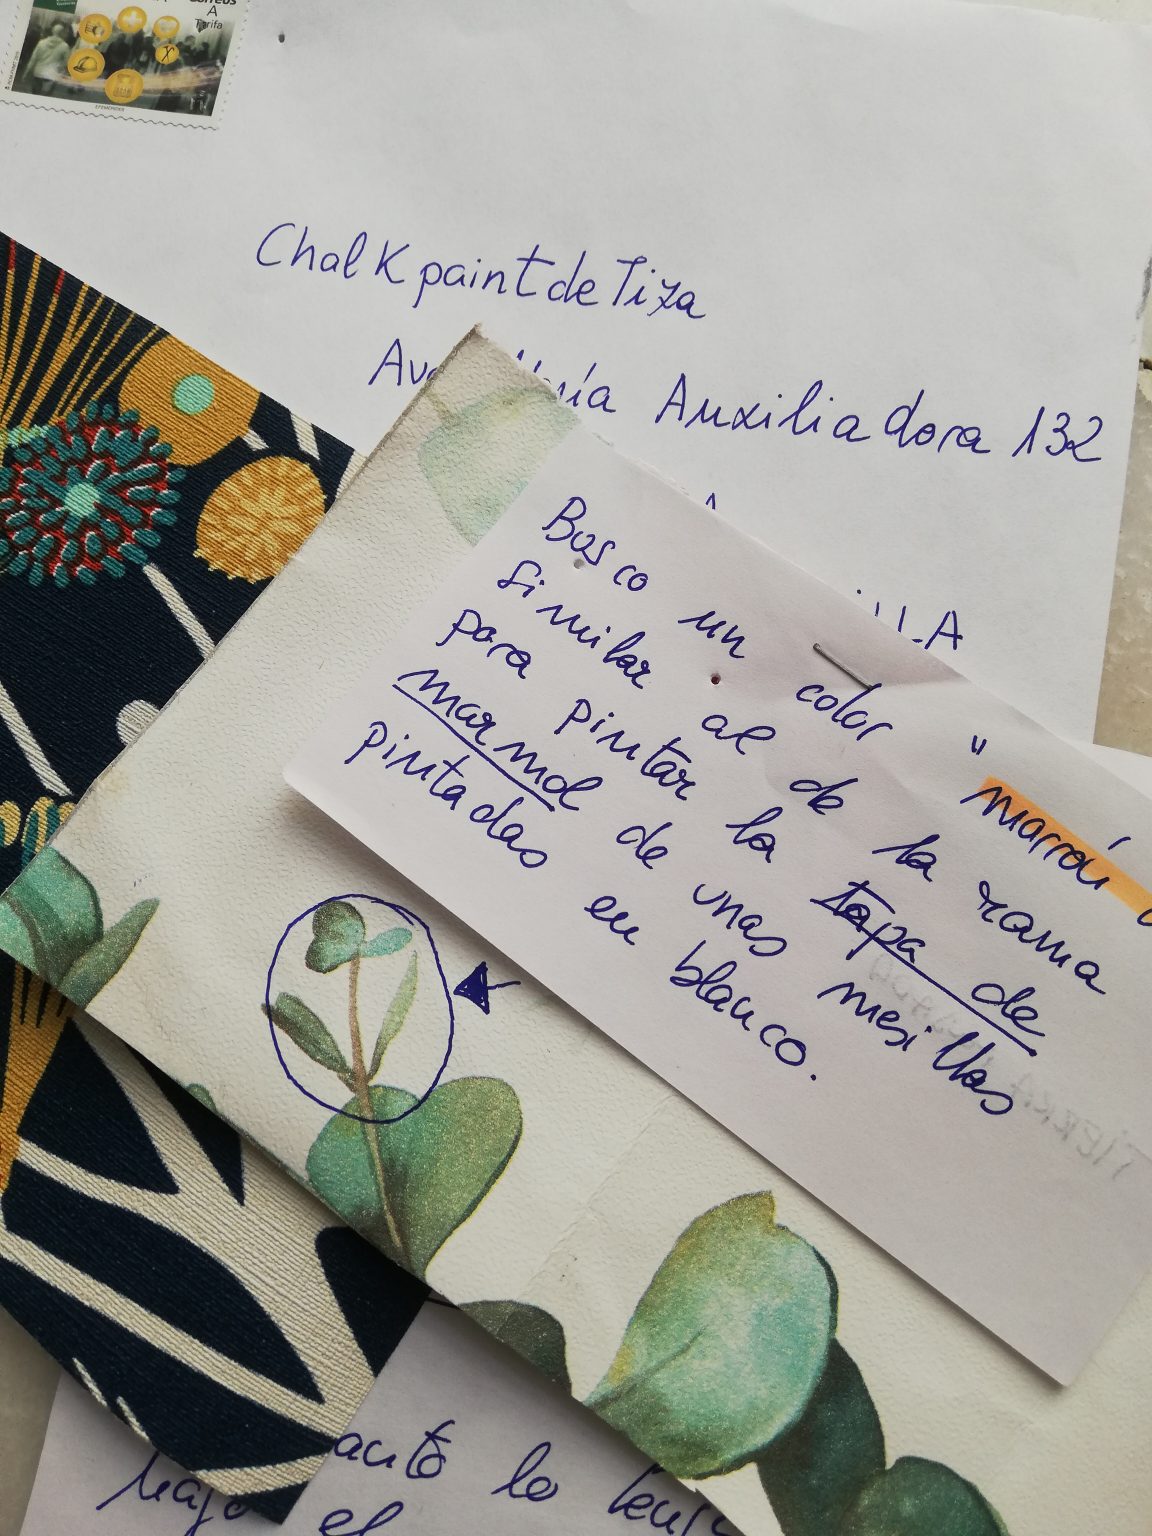 A
Tarifa
EFEMÉRIDES
ChalkpaintdeTiza
Auxiliadora 132
LLA
Busco un color "marrón
similar al de la rama
para pintar la tapa de
marmol de unas mesillas
pintadas en blanco.
lo
el